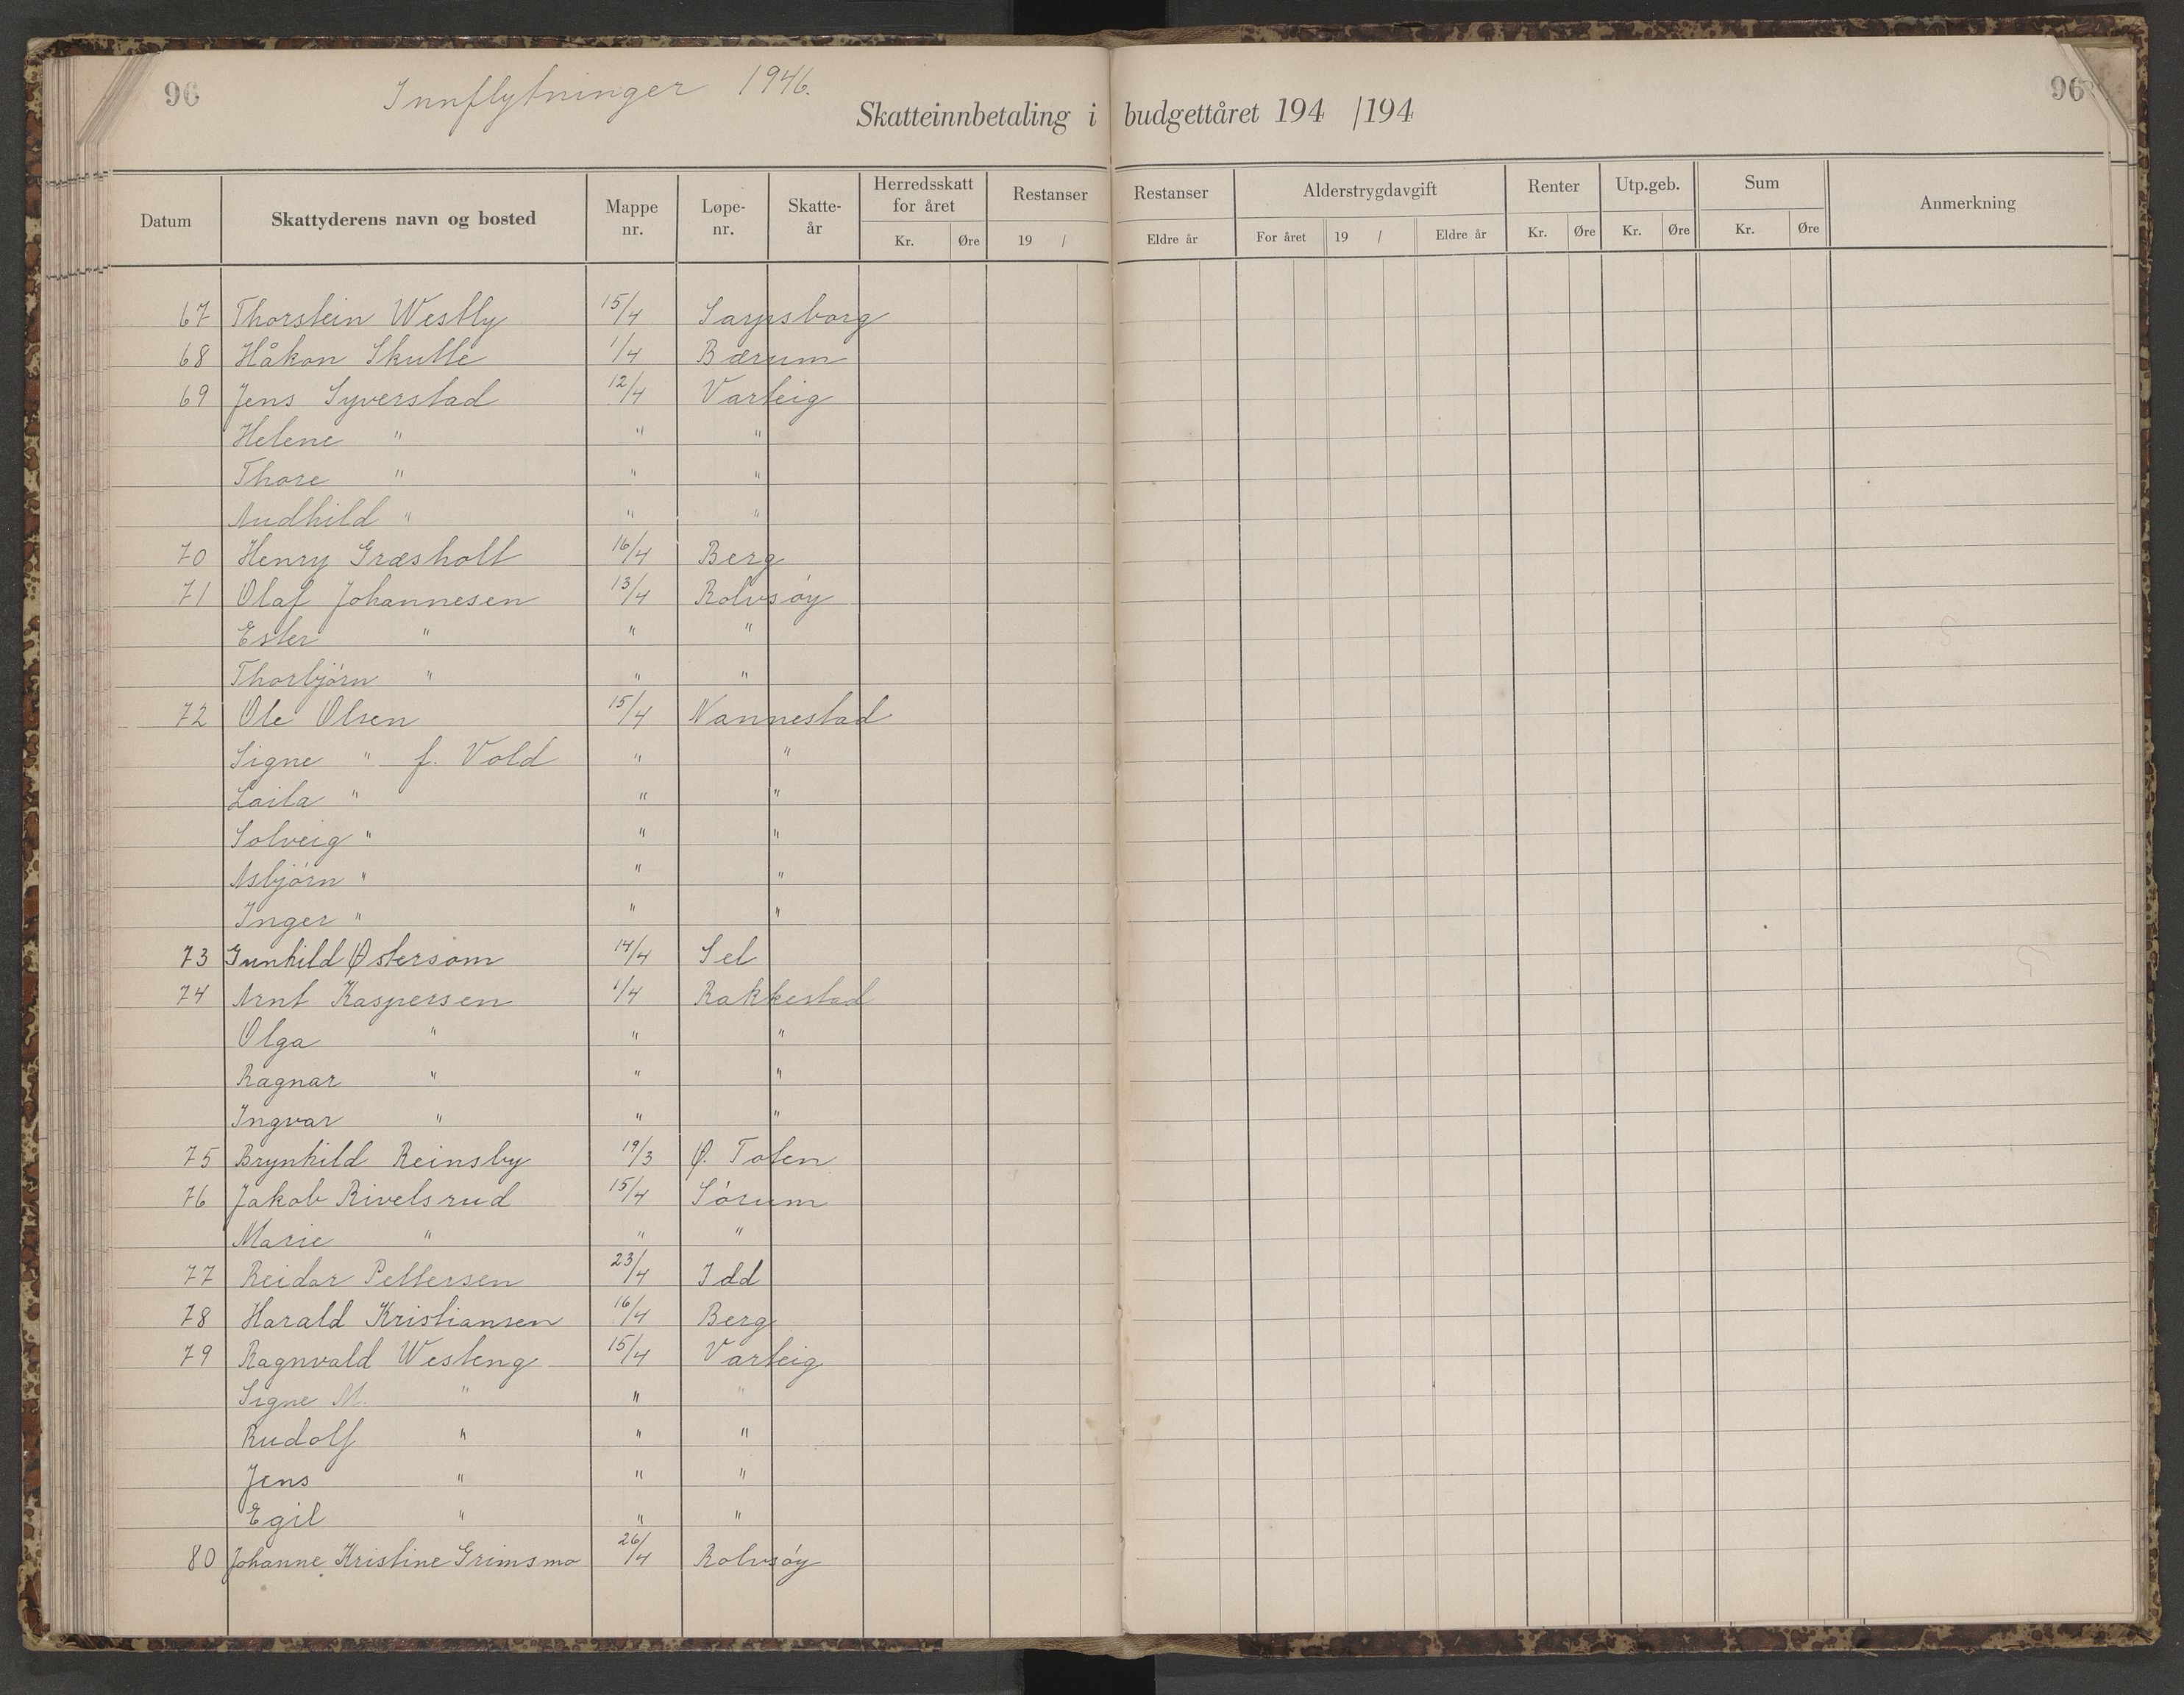 96
Innflytninger 1946.
96
Skatteinnbetaling i budgettåret 194 /194
Datum Skattyderens navn og bosted Mappe nr. Løpe- nr. Skatte- år Herredsskatt for året Kr. Øre Restanser 19 / Restanser Eldre år Alderstrygdavgift For året 19 / Eldre år Renter Kr. Øre Utp.geb. Kr. Øre Sum Kr. Øre Anmerkning
67 Thorstein Westby 15/4 Sarpsborg
68 Håkon Skulle 1/4 Bærum
69 Jens Syverstad 12/4 Varteig
Helene " " "
Thore " " "
Audhild " " "
70 Henry Græsholt 16/4 Berg
71 Olaf Johannesen 13/4 Rolvsøy
Ester " " "
Thorbjørn " " "
72 Ole Olsen 15/4 Nannestad
Signe " f. Vold " "
Laila " " "
Solveig " " "
Asbjørn " " "
Inger " " "
73 Gunhild Østersom 14/4 Sel
74 Arnt Kaspersen 1/4 Rakkestad
Olga " " "
Ragnar " " "
Ingvar " " "
75 Brynhild Reinsby 19/3 Ø. Toten
76 Jakob Rivelsrud 15/4 Sørum
Marie " " "
77 Reidar Pettersen 23/4 Idd
78 Harald Kristiansen 16/4 Berg
79 Ragnvald Westeng 15/4 Varteig
Signe M. " " "
Rudolf " " "
Jens " " "
Egil " " "
80 Johanne Kristine Grimsmo 26/4 Rolvsøy